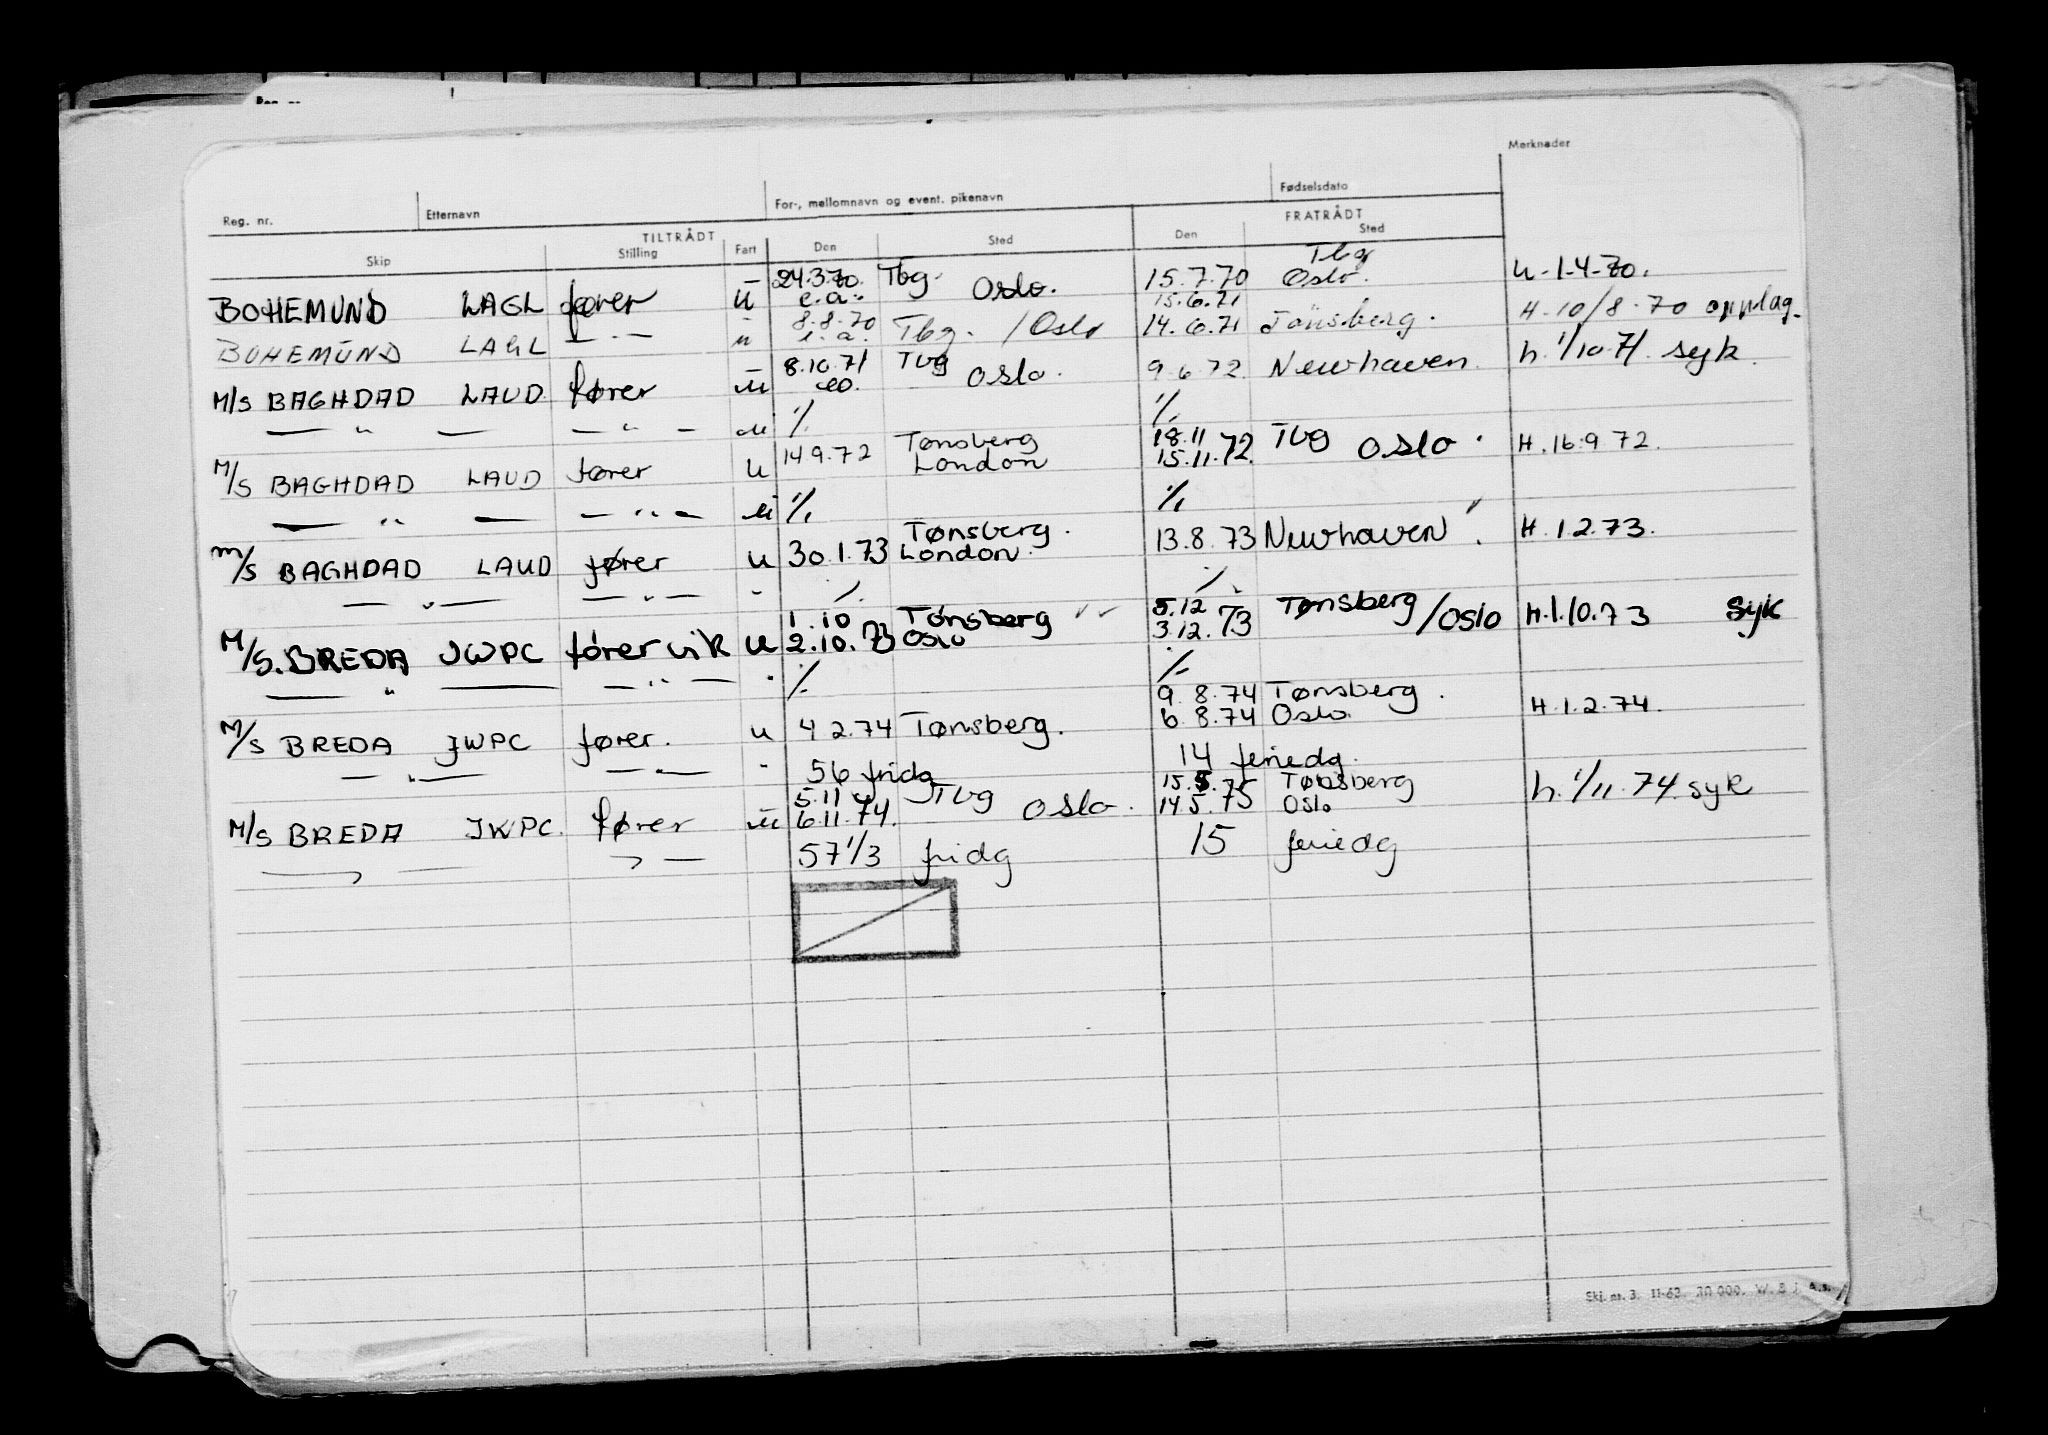 Merknader
Reg. nr. Etternavn For-, mellomnavn og event. pikenavn Fødselsdato
TILTRÅDT FRATRÅDT
Skip Stilling Fart Den Sted Den Sted
24.3.70. Tbg. 15.7.70 Tbg
BOHEMUND LAGL fører u e.a. Oslo. 15.6.71 Oslo. u-1-4-70.
8.8.70
BOHEMUND LAGL — " — u e.a. Tbg. / Oslo 14.6.71 Tønsberg. H. 10/8.70 opplag.
8.10.71 Tbg
M/S BAGHDAD LAUD fører u eo. Oslo. 9.6.72 Newhaven. h. 1/10.71. syk
— " — — " — u % %
14.9.72 Tønsberg 18.11
M/S BAGHDAD LAUD fører u London 15.11.72. Tbg Oslo. H. 16.9.72.
— " — — " — u % %
Tønsberg.
M/S BAGHDAD LAUD fører u 30.1.73 London. 13.8.73 Newhaven. H.1.2.73.
— " — — " — " % %
1.10 Tønsberg 5.12 Tønsberg
M/S. BREDA JWPC fører vik u 2.10.73 Oslo 3.12.73 /Oslo H.1.10.73 syk
— " — — " — " % %
9.8.74 Tønsberg.
M/S BREDA JWPC fører. u 4.2.74 Tønsberg. 6.8.74 Oslo. H.1.2.74.
— " — — " — " 56 fridg 14 feriedg.
5.11 Tbg 15.5.75 Tønsberg
M/S BREDA JWPC. fører u 6.11.74. Oslo. 14.5.75 Oslo h. 1/11.74. syk
— " — — " — 57 1/3 fridg 15 feriedg
Skj. nr. 3. 11-63. 30 000. W. & J. A.s.